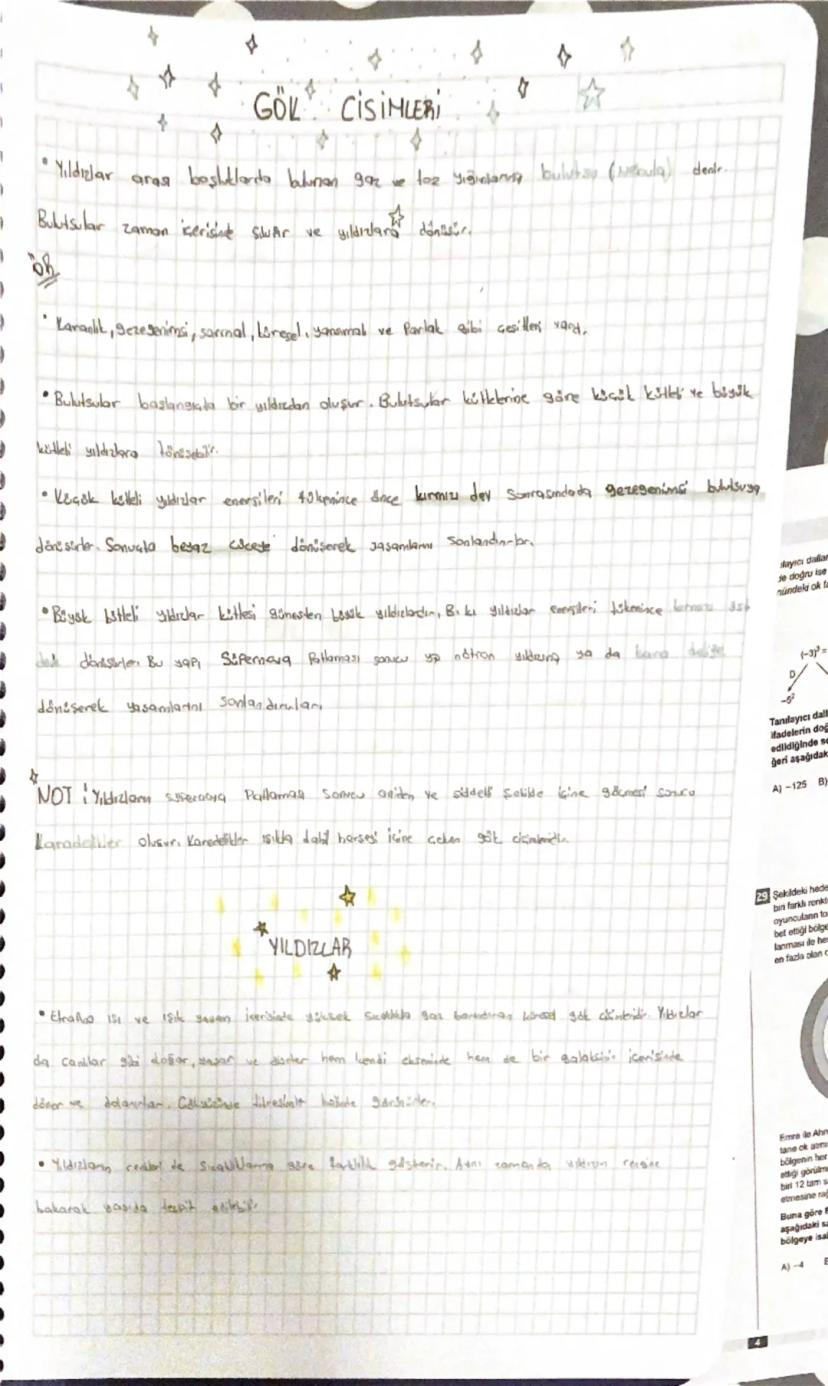 GÖK CİSİMLERİ
• Yıldızlar arası boşluklarda bulunan gaz ve toz yığınlarına bulutsu (Nebula) denir.
Bulutsular zaman içerisinde ısınır ve yıldızlara dönüşür.
• Karanlık, gezegenimsi, sarmal, küresel, yansımalı ve Parlak gibi çeşitleri vardı.
• Bulutsular başlangıçta bir yıldızdan oluşur. Bulutsular kütlelerine göre küçük kütleli ve büyük
kütleli yıldızlara dönüşebilir.
• Küçük kütleli yıldızlar enerjileri tükenince önce kırmızı dev sonrasındada gezegenimsi bulutsuya
dönüşürler. Sonuçta beyaz cüceye dönüşerek yaşamlarını sonlandırırlar.
• Büyük kütleli yıldızlar kütlesi güneşten büyük yıldızlardır. Bu yıldızlar enerjileri tükenince kırmızı
dönüşürler. Bu yapı Süpernova Patlaması sonucu ya nötron yıldızına ya da kara deliğe
dönüşerek yaşamlarını sonlandırırlar.
NOT: Yıldızların süpernova Patlaması sonucu aniden ve şiddetli şekilde içine çökmesi sonucu
Karadelikler oluşur. Karadelikler ışıkta dahil herşeyi içine çeken gök cisimleridir.
YILDIZLAR
• Etrafına ısı ve ışık yayan içerisinde yüksek sıcaklıkta gaz barındıran küresel gök cisimleridir. Yıldızlar
da canlılar gibi doğar, yaşar ve hem kendi ekseninde hem de bir galaksinin içerisinde
döner ve dolanırlar. Gökyüzünde titreşimle halinde görünürler.
• Yıldızların renkleri de sıcaklıklarına göre farklılık gösterir. Aynı zamanda yıldızın rengine
bakarak yaşıda tespit edilebilir.
de doğru ise
Tanılayıcı dall
ifadelerin doğ
edildiğinde
ğeri aşağıdak
A) -125 B)
29 Şekildeki hede
biri farklı renkt
oyuncuların to
bet ettiği bölge
lanması ile he
en fazla olan
Emre ile Ahm
tane ok atmı
bölgenin her
ettiği görülm
biri 12 tam
etmesine
Buna göre
aşağıdaki
bölgeye isa
A) -4
4